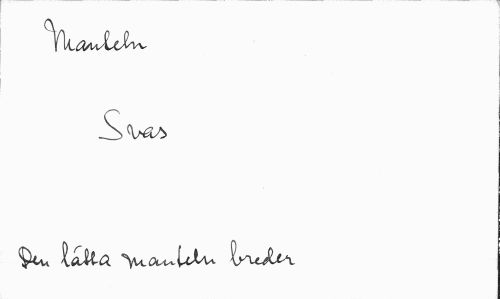 Manteln
Svas
Den lätta manteln breder